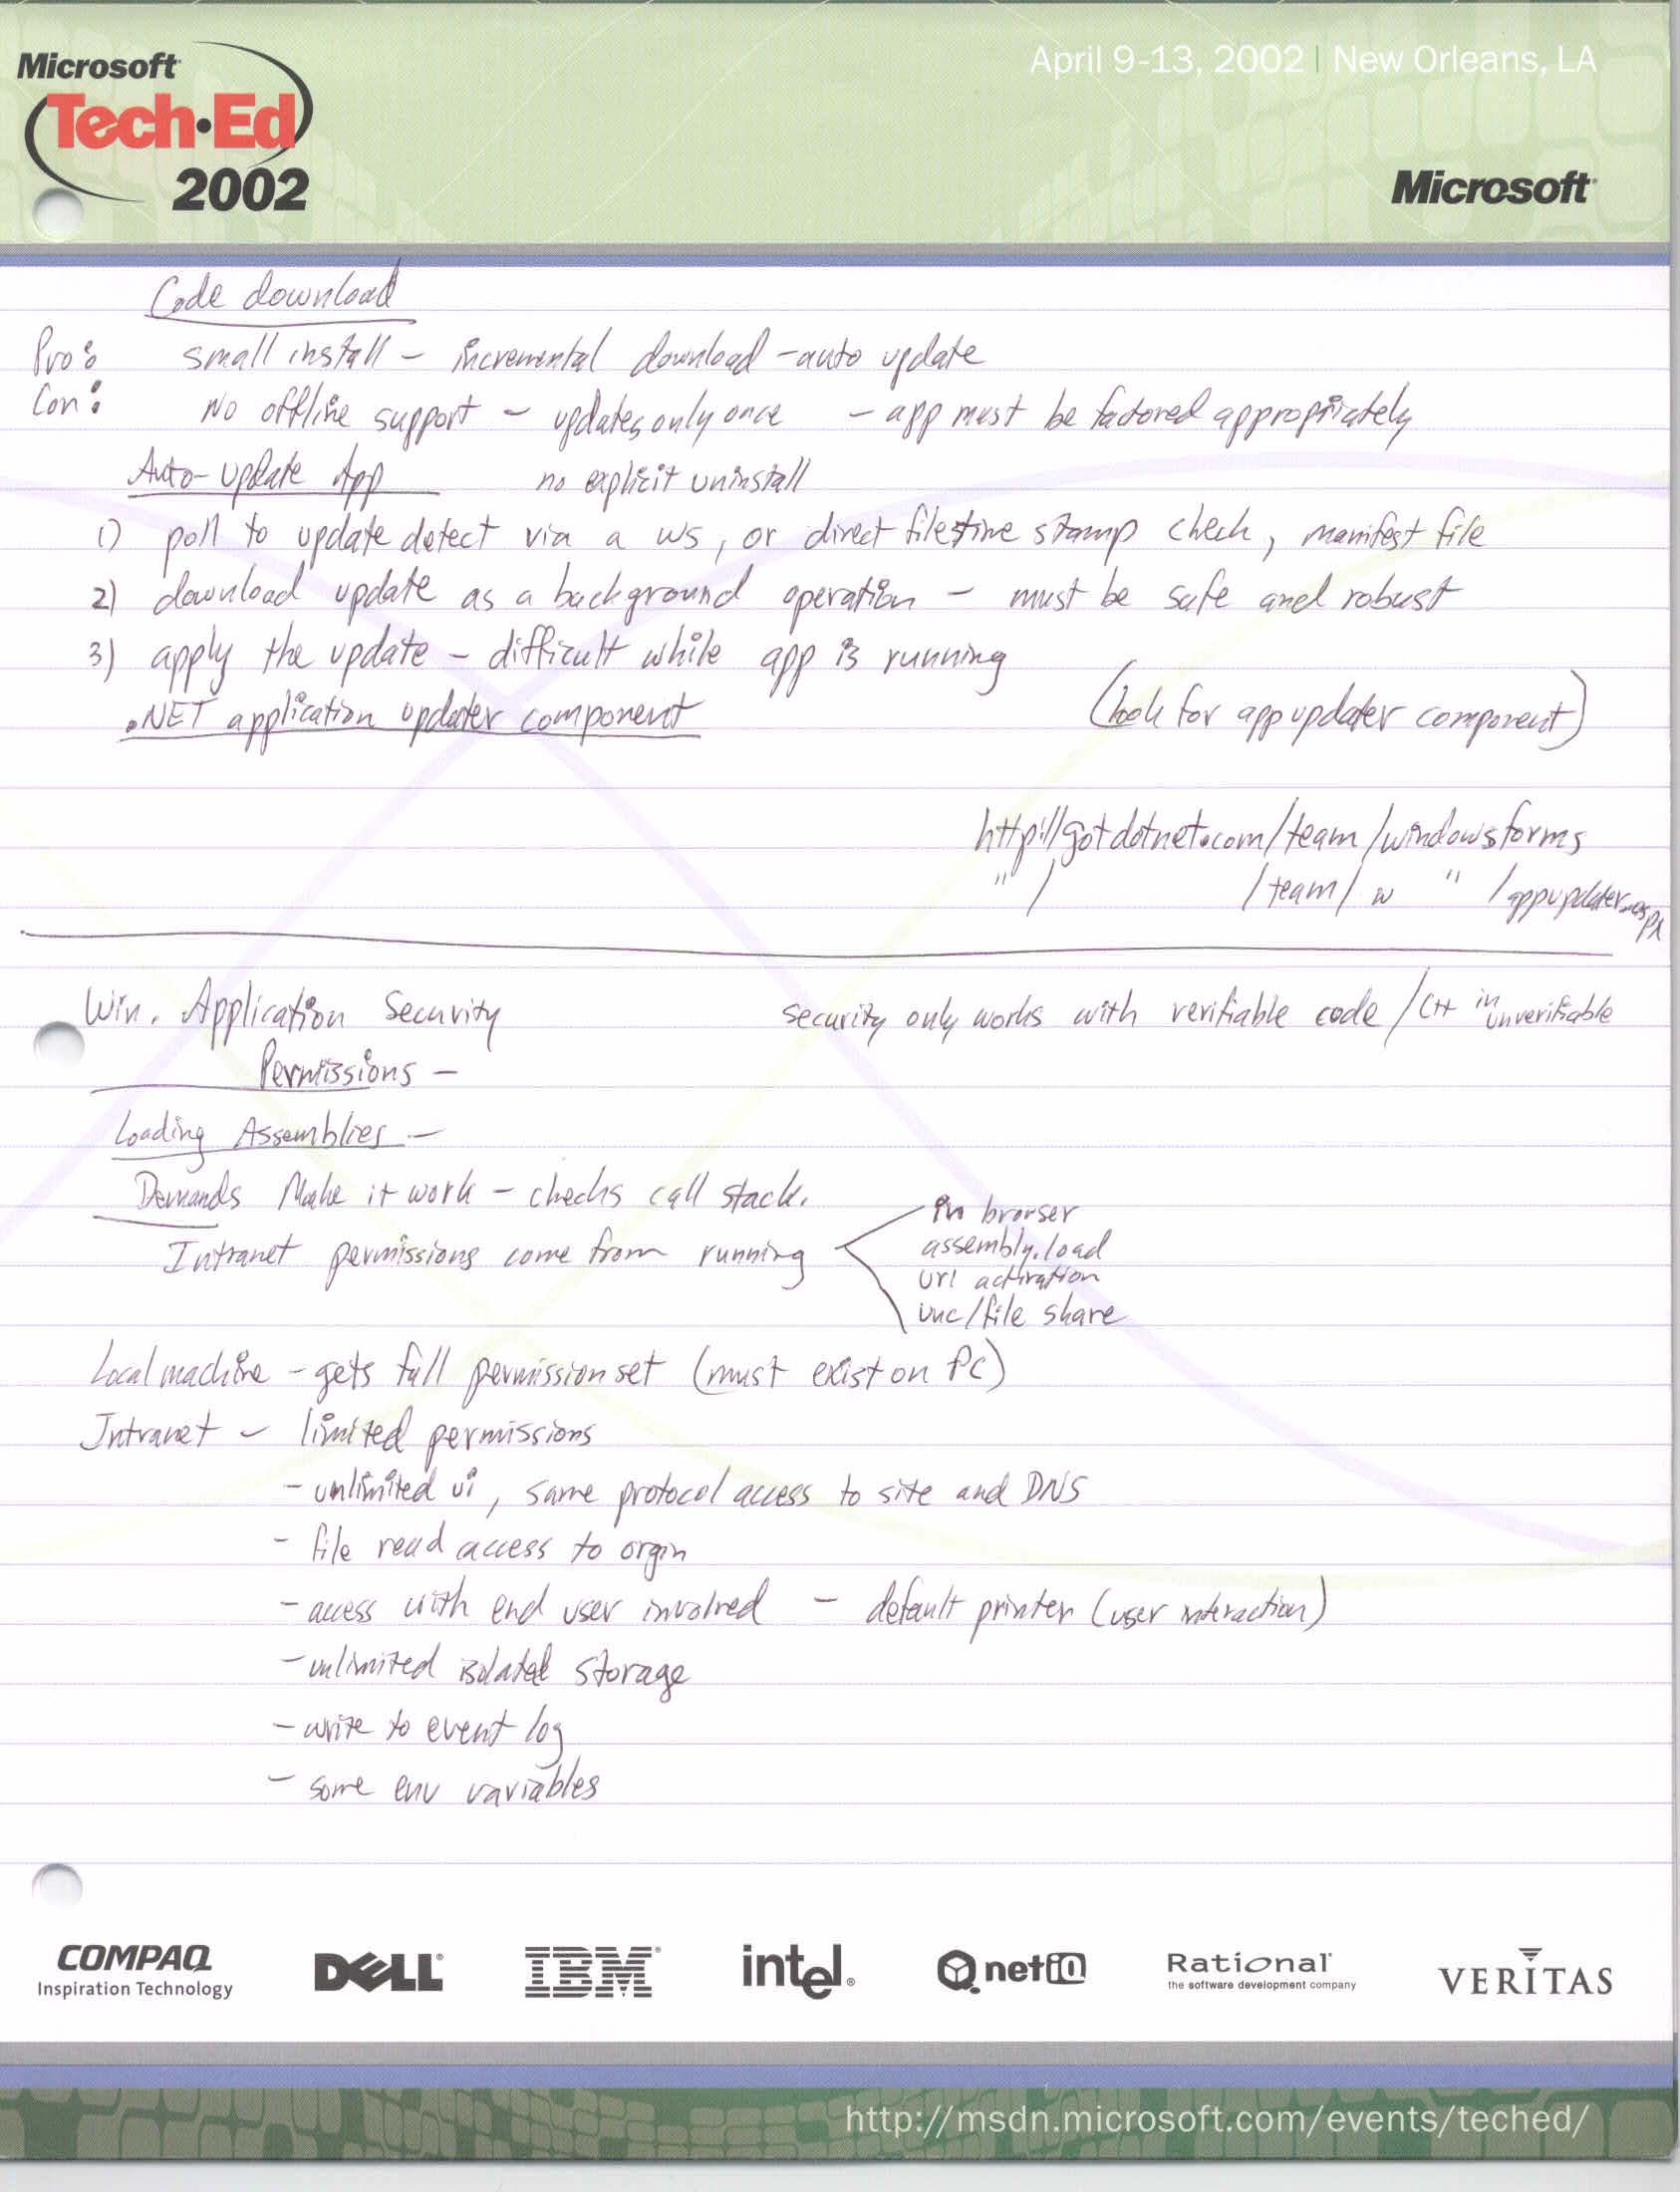 Microsoft
Tech·Ed
2002
April 9-13, 2002 | New Orleans, LA
Microsoft
Code download
Pro: small install - incremental download - auto update
Con: No offline support - updates only once - app must be factored appropriately
Auto-update App no explicit uninstall
1) poll to update detect via a ws, or direct file time stamp check, manifest file
2) download update as a background operation - must be safe and robust
3) apply the update - difficult while app is running
.NET application updater component (look for app updater component)
http://gotdotnet.com/team/windowsforms
" / /team/ w " /appupdater.aspx
Win. Application Security security only works with verifiable code / C++ in unverifiable
Permissions -
Loading Assemblies -
Demands Make it work - checks call stack.
Intranet permissions come from running
in browser
assembly.load
url activation
unc/file share
Local machine - gets full permission set (must exist on PC)
Intranet - limited permissions
- unlimited ui, same protocol access to site and DNS
- file read access to orgin
- access with end user involved - default printer (user interaction)
- unlimited isolated storage
- write to event log
- some env variables
COMPAQ
Inspiration Technology
DELL
IBM
intel
netiQ
Rational
the software development company
VERITAS
http://msdn.microsoft.com/events/teched/